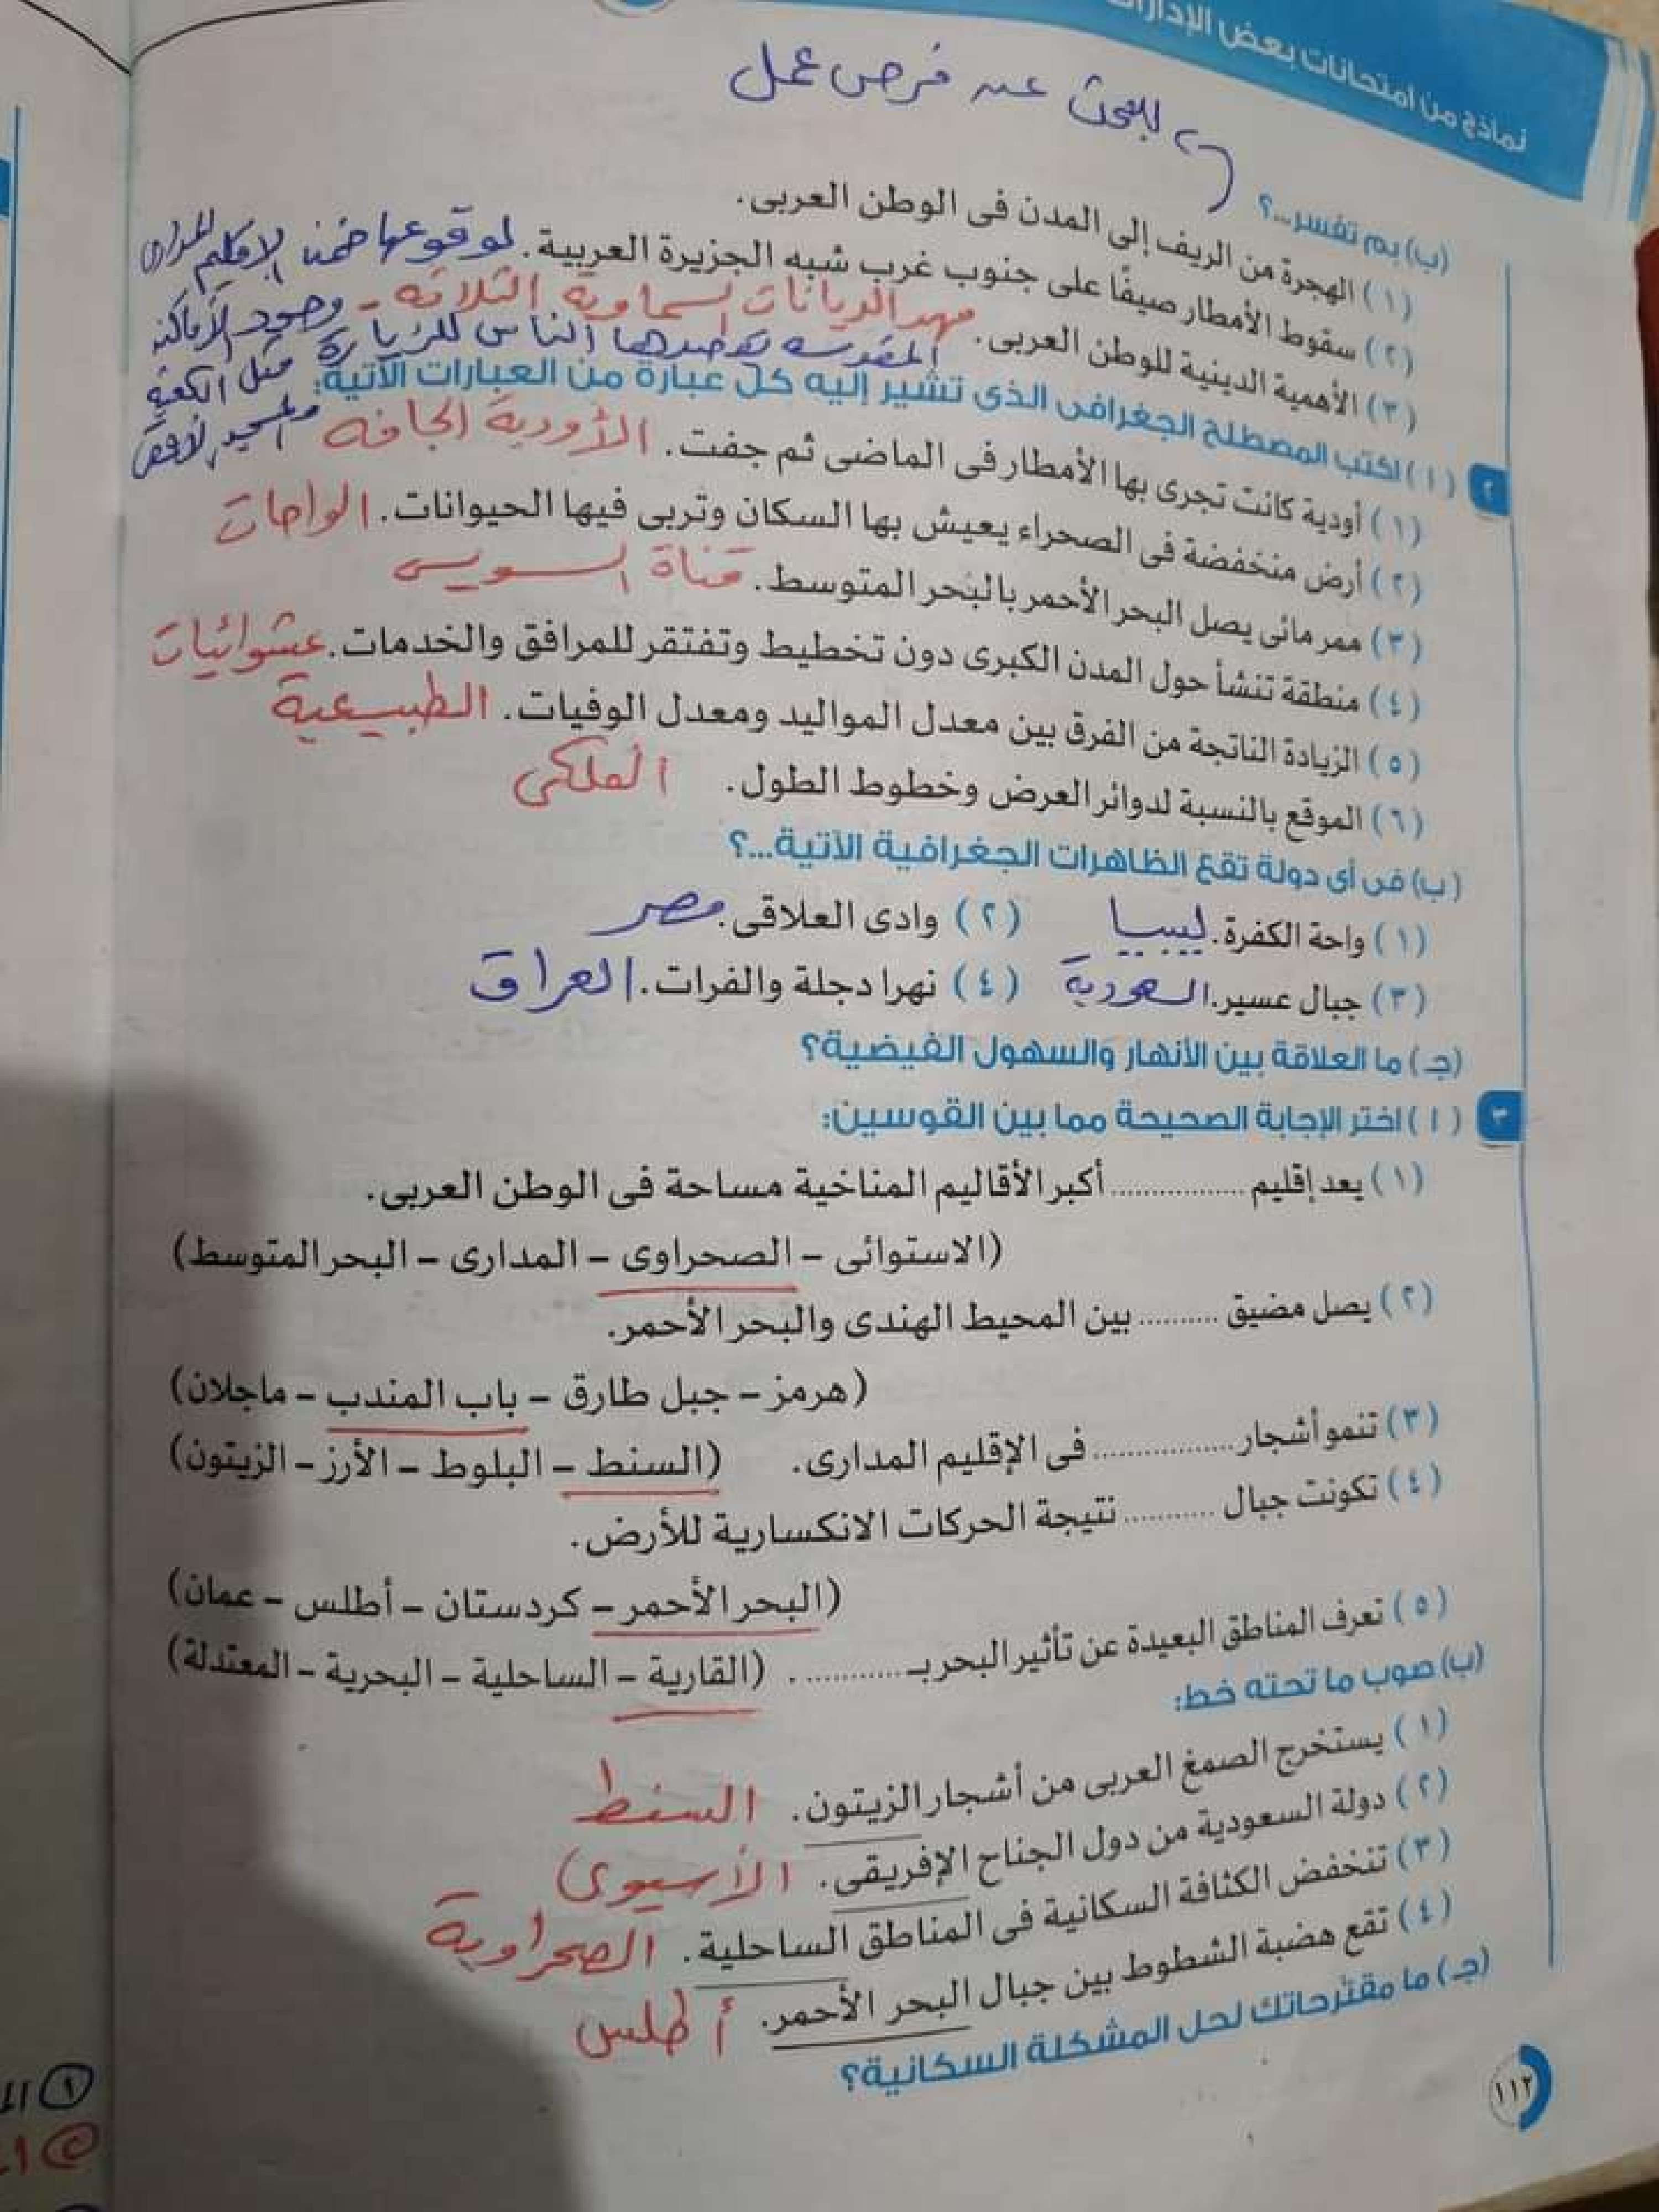 نماذج من امتحانات بعض الإدارات
للبحث عن فرص عمل
(ب) بم تفسر...؟
(١) الهجرة من الريف إلى المدن فى الوطن العربى.
(٢) سقوط الأمطار صيفًا على جنوب غرب شبه الجزيرة العربية. لوقوعها ضمن الإقليم المدارى
(٣) الأهمية الدينية للوطن العربى. مهد الديانات السماوية الثلاثة - وجود الأماكن
المقدسة يقصدها الناس للزيارة مثل الكعبة
والمسجد الأقصى
٢ (١) اكتب المصطلح الجغرافى الذى تشير إليه كل عبارة من العبارات الآتية:
(١) أودية كانت تجرى بها الأمطار فى الماضى ثم جفت. الأودية الجافة
(٢) أرض منخفضة فى الصحراء يعيش بها السكان وتربى فيها الحيوانات. الواحات
(٣) ممر مائى يصل البحر الأحمر بالبحر المتوسط. قناة السويس
(٤) منطقة تنشأ حول المدن الكبرى دون تخطيط وتفتقر للمرافق والخدمات. عشوائيات
(٥) الزيادة الناتجة من الفرق بين معدل المواليد ومعدل الوفيات. الطبيعية
(٦) الموقع بالنسبة لدوائر العرض وخطوط الطول. الفلكى
(ب) فى أى دولة تقع الظاهرات الجغرافية الآتية...؟
(١) واحة الكفرة. ليبيا (٢) وادى العلاقى. مصر
(٣) جبال عسير. السعودية (٤) نهرا دجلة والفرات. العراق
(جـ) ما العلاقة بين الأنهار والسهول الفيضية؟
٣ (١) اختر الإجابة الصحيحة مما بين القوسين:
(١) يعد إقليم ................ أكبر الأقاليم المناخية مساحة فى الوطن العربى.
(الاستوائى – الصحراوى – المدارى – البحر المتوسط)
(٢) يصل مضيق .......... بين المحيط الهندى والبحر الأحمر.
(هرمز – جبل طارق – باب المندب – ماجلان)
(٣) تنمو أشجار ................. فى الإقليم المدارى. (السنط – البلوط – الأرز – الزيتون)
(٤) تكونت جبال ........... نتيجة الحركات الانكسارية للأرض.
(البحر الأحمر – كردستان – أطلس – عمان)
(٥) تعرف المناطق البعيدة عن تأثير البحر بـ ............ . (القارية – الساحلية – البحرية – المعتدلة)
(ب) صوب ما تحته خط:
(١) يستخرج الصمغ العربى من أشجار الزيتون. السنط
(٢) دولة السعودية من دول الجناح الإفريقى. الأسيوى
(٣) تنخفض الكثافة السكانية فى المناطق الساحلية. الصحراوية
(٤) تقع هضبة الشطوط بين جبال البحر الأحمر. أطلس
(جـ) ما مقترحاتك لحل المشكلة السكانية؟
١١٢